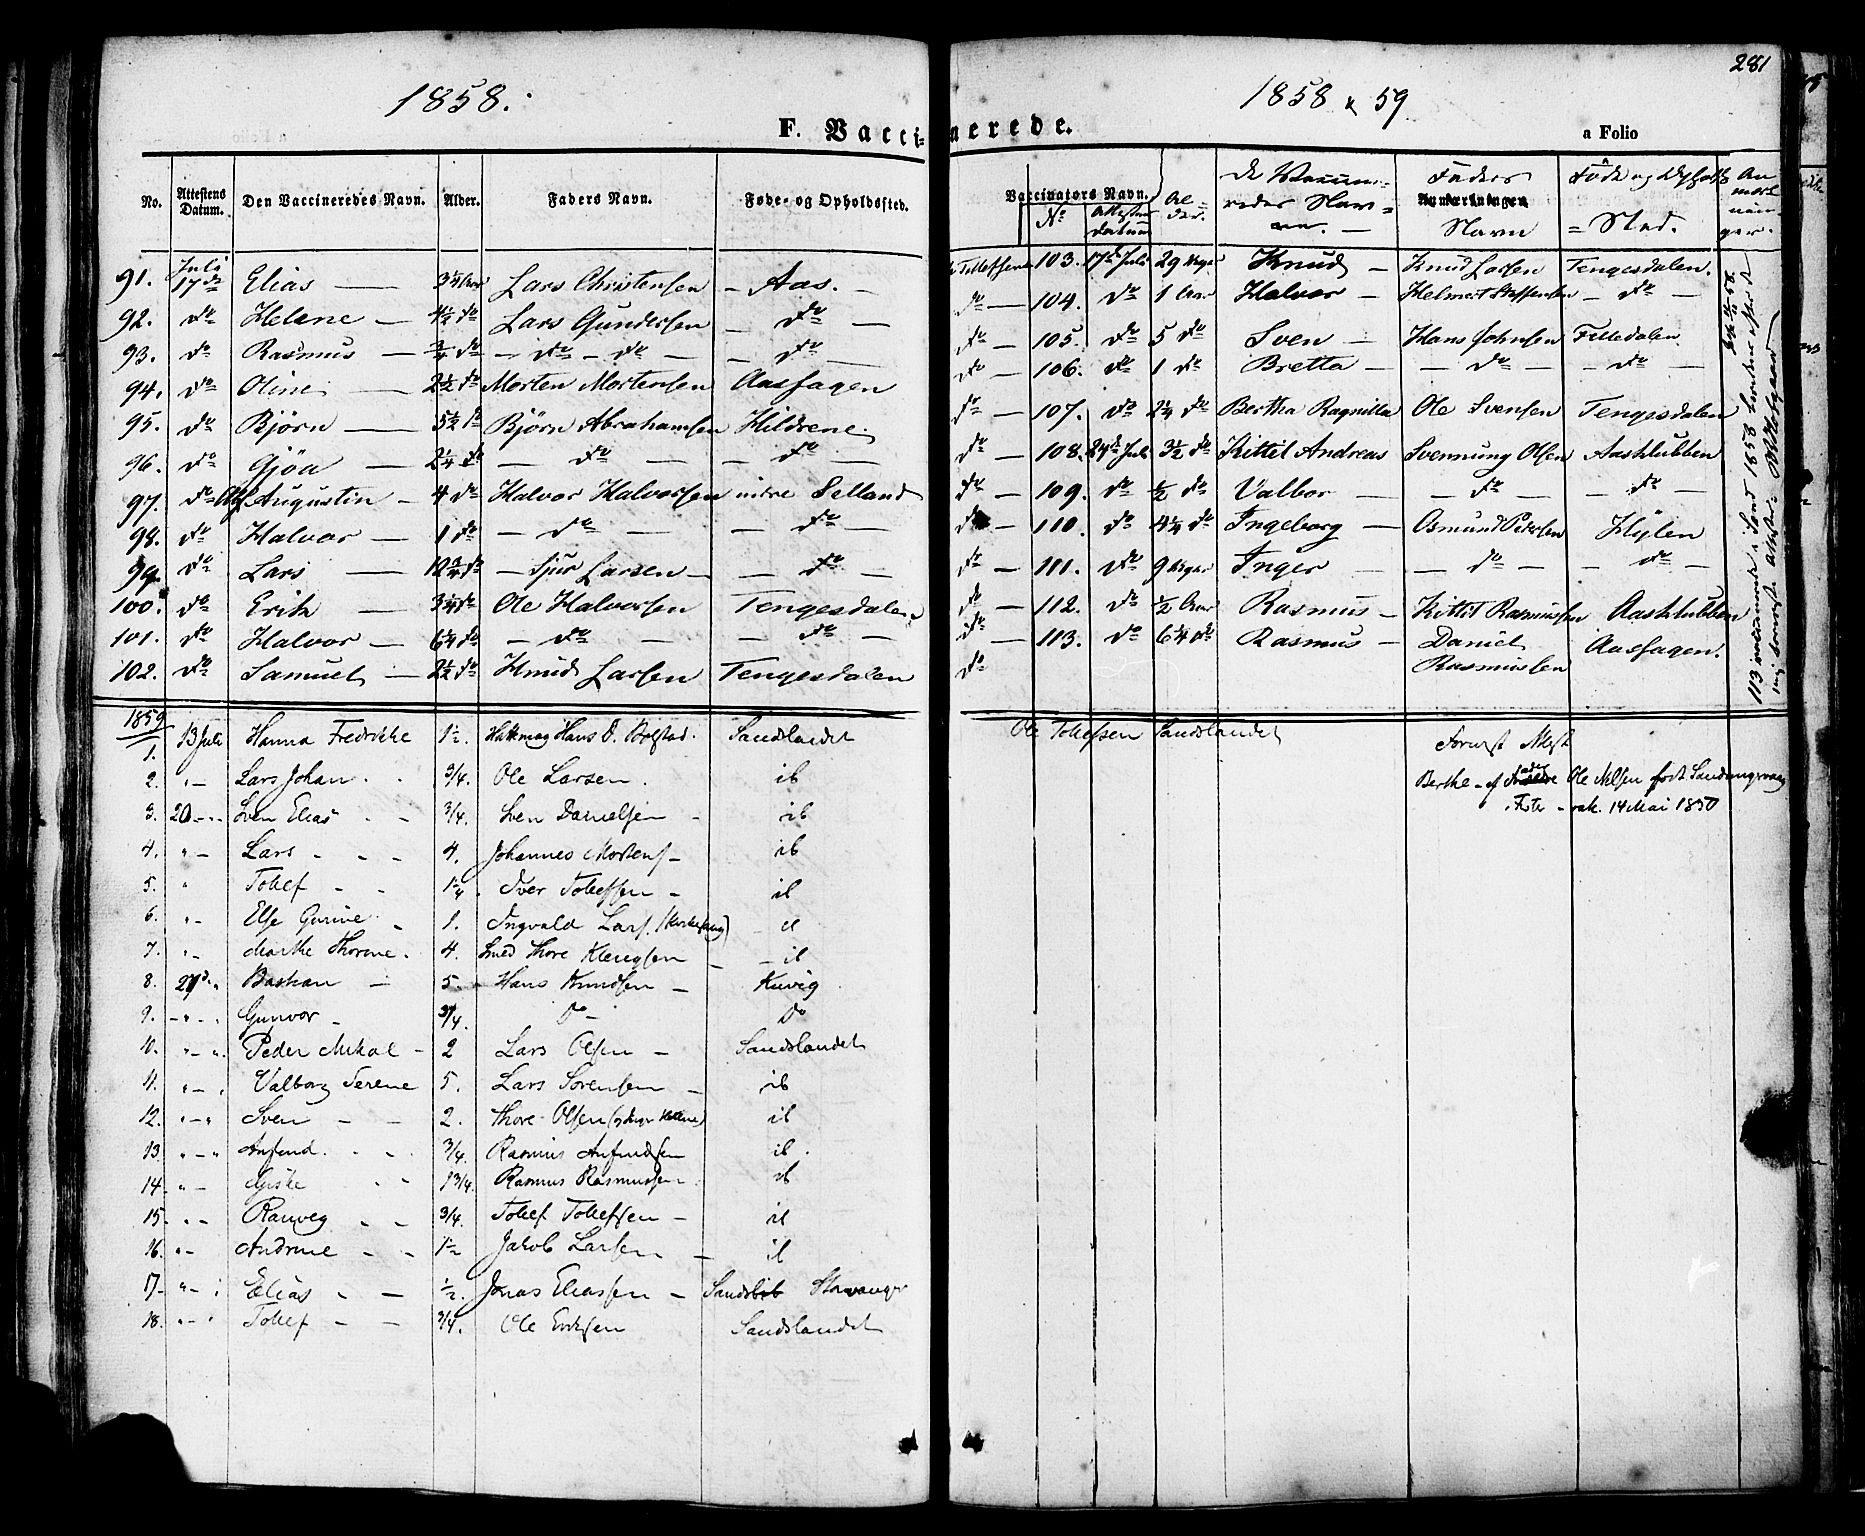 1858.
F. Vacci-
No. Attestens Datum. Den Vaccineredes Navn. Alder. Faders Navn. Føde- og Opholdssted.
91. Juli 17de Elias — 3¼ Aar Lars Christensen – Aas. –
92. do Helene — 4½ do Lars Gundersen – do —
93. do Rasmus — ¾ do – do – do — – do —
94. do Oline — 2½ do Morten Mortensen Aasfagen
95. do Björn — 5½ do Björn Abrahamsen Hildrene.
96. do Gjöa — 2¼ do — do — – do —
97. do Augustin – 4 do Halvor Halvorsen indre Selland
98. do Halvor – 1 do – do — – do —
99. do Lars — do – Sjur Larsen – – do —
100. do Erik — 3¼ do Ole Halvorsen Tengesdalen
101. do Halvor – 6¼ do – do — — do —
102. do Samuel – 2½ do Knud Larsen Tengesdalen
1859
1. 13 Juli Hanna Fredrikke 1½. Hans D. Bolstad. Sandslandet
2. " – Lars Johan . . 3/4. Ole Larsen. ib
3. 20 – " Sven Elias . . 3/4. Sven Danielsen – ib
4. " – Lars . – – 4. Johannes Mortens – ib
5. " Tollef – – 1¼. Iver Tollefsen – ib
6. " – Else Gurine – 1. Ingvald Lars. ib
7. " – Marthe Thorene. 4. Smed Thore – ib
8. 27d " Bastian – 5. Hans Knudsen – Kuvig
9. – " – Gunvor – 3/4. Do – Do
10. " – " Peder Mikal – 2 Lars Olsen – Sandslandet
11. " – " Valborg Serene 5. Lars Sorensen – ib
12. " – " Sven – – 2. Thore Olsen ib
13. " – " Anfind. . . 3/4. Rasmus Anfindsen ib.
14. " – . . 1 3/4. Rasmus Rasmussen ib
15. " – Ranveg . – 3/4. Tollef Tollefsen – ib
16. " – Andrine – – 1½ Jakob Larsen – ib
17. " – " Elias . – ½. Jonas Eliassen – Stavanger
18. " – " Tollef – – 3/4. Ole Eriksen Sandslandet
281
1858 & 59
nerede.
a Folio
Vaccinators Navn. No Attestens Datum Alder. De Vaccineredes Navne. – Faders Anmærkningen Navn Føde og Opholds = Sted. Anmærkninger.
Tollefsen 103. 17de Juli 29 Uger Knud – Knud Larsen Tengesdalen.
do — 104. do 1 Aar Halvor – Helmert Staffensen – do –
do — 105. do 5 do Sven – Hans Johnsen Tilledalen
do — 106. do 1 do Bretta – – do – – do –
do — 107. do 2¼ do Bertha Ragnilla Ole Svensen Tengesdalen
do — 108. 24de Juli 3½ do Kittil Andreas Svennung Olsen Aasklubben
do — 109. do ½ do Valbor – – do – – do –
do — 110. do 4¼ do Ingeborg – Osmund Pedersen Hylen
do — 111. do 9 Uger Inger – – do – – do –
do — 112. do ½ Aar Rasmus – Kittil Rasmussen Aasklubben
do — 113. do 6¼ do Rasmus – Daniel Rasmussen Aasfagen.
do
113 vaccinerede i Sand 1858
Ole Tollefsen Sandslandet
Berthe – af fader Ole Nilsen født
– vak. 14 Mai 1850